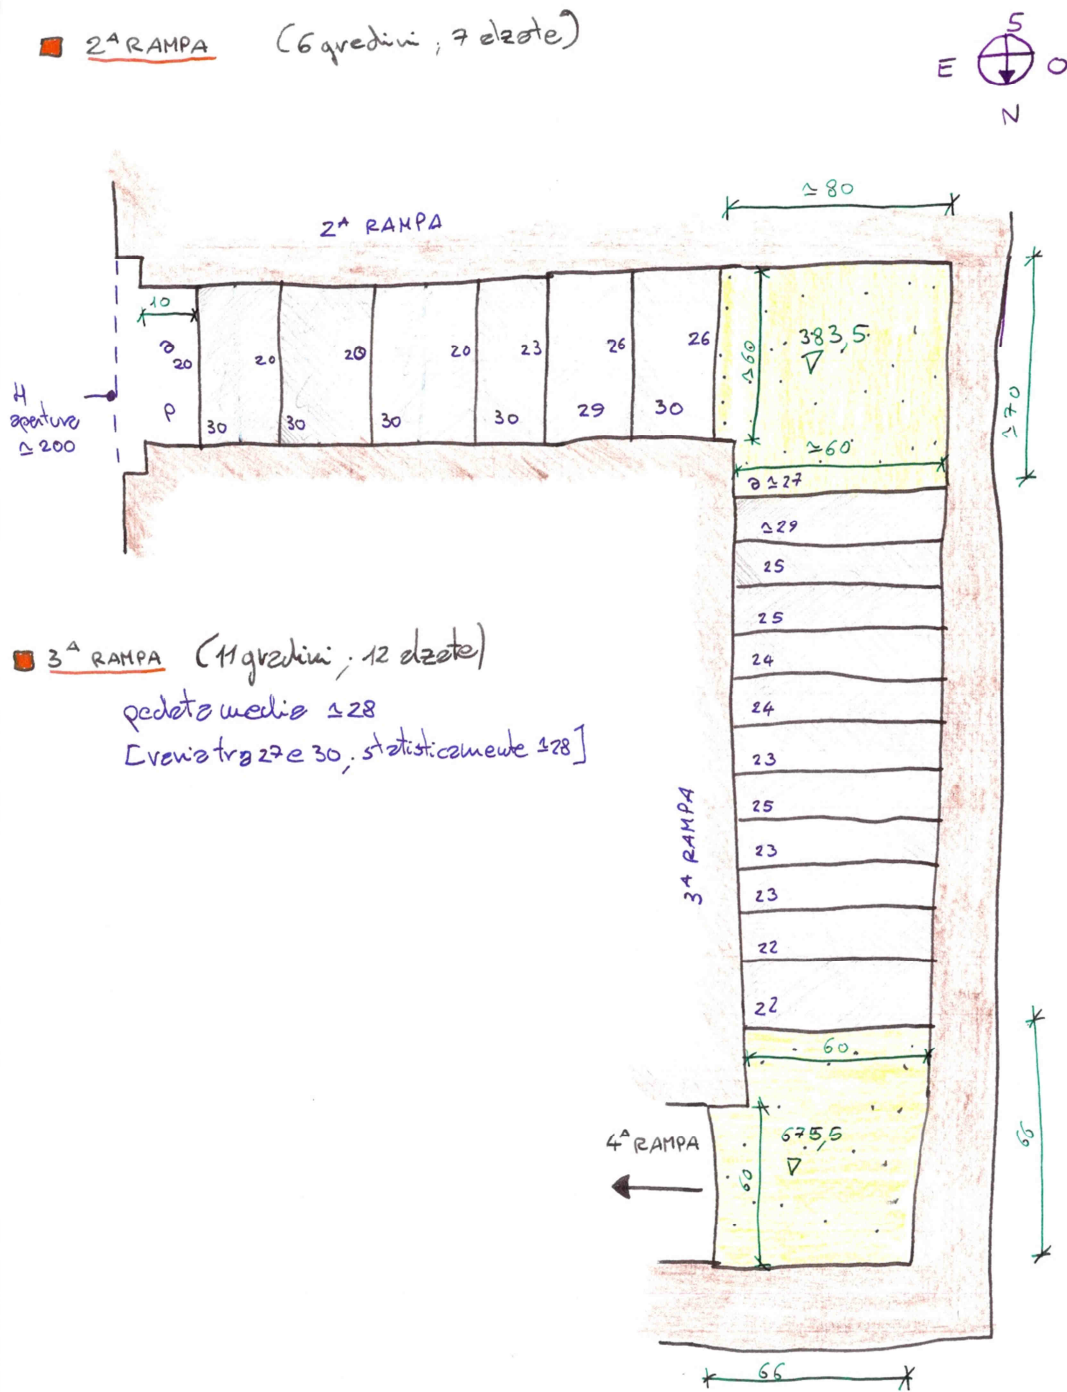 2ᴬ RAMPA (6 gradini ; 7 alzate)
S
E O
N
≃ 80
2ᴬ RAMPA
10
a
20 20 20 20 23 26 26
P
30 30 30 30 29 30
H
apertura
≃ 200
383,5
≃60
≃70
≃60
a ≃27
≃29
25
25
24
24
23
25
23
23
22
22
3ᴬ RAMPA (11 gradini ; 12 alzate)
pedata media ≃28
[varia tra 27 e 30 ; statisticamente ≃28]
3ᴬ RAMPA
60
675,5
4ᴬ RAMPA
60
66
66